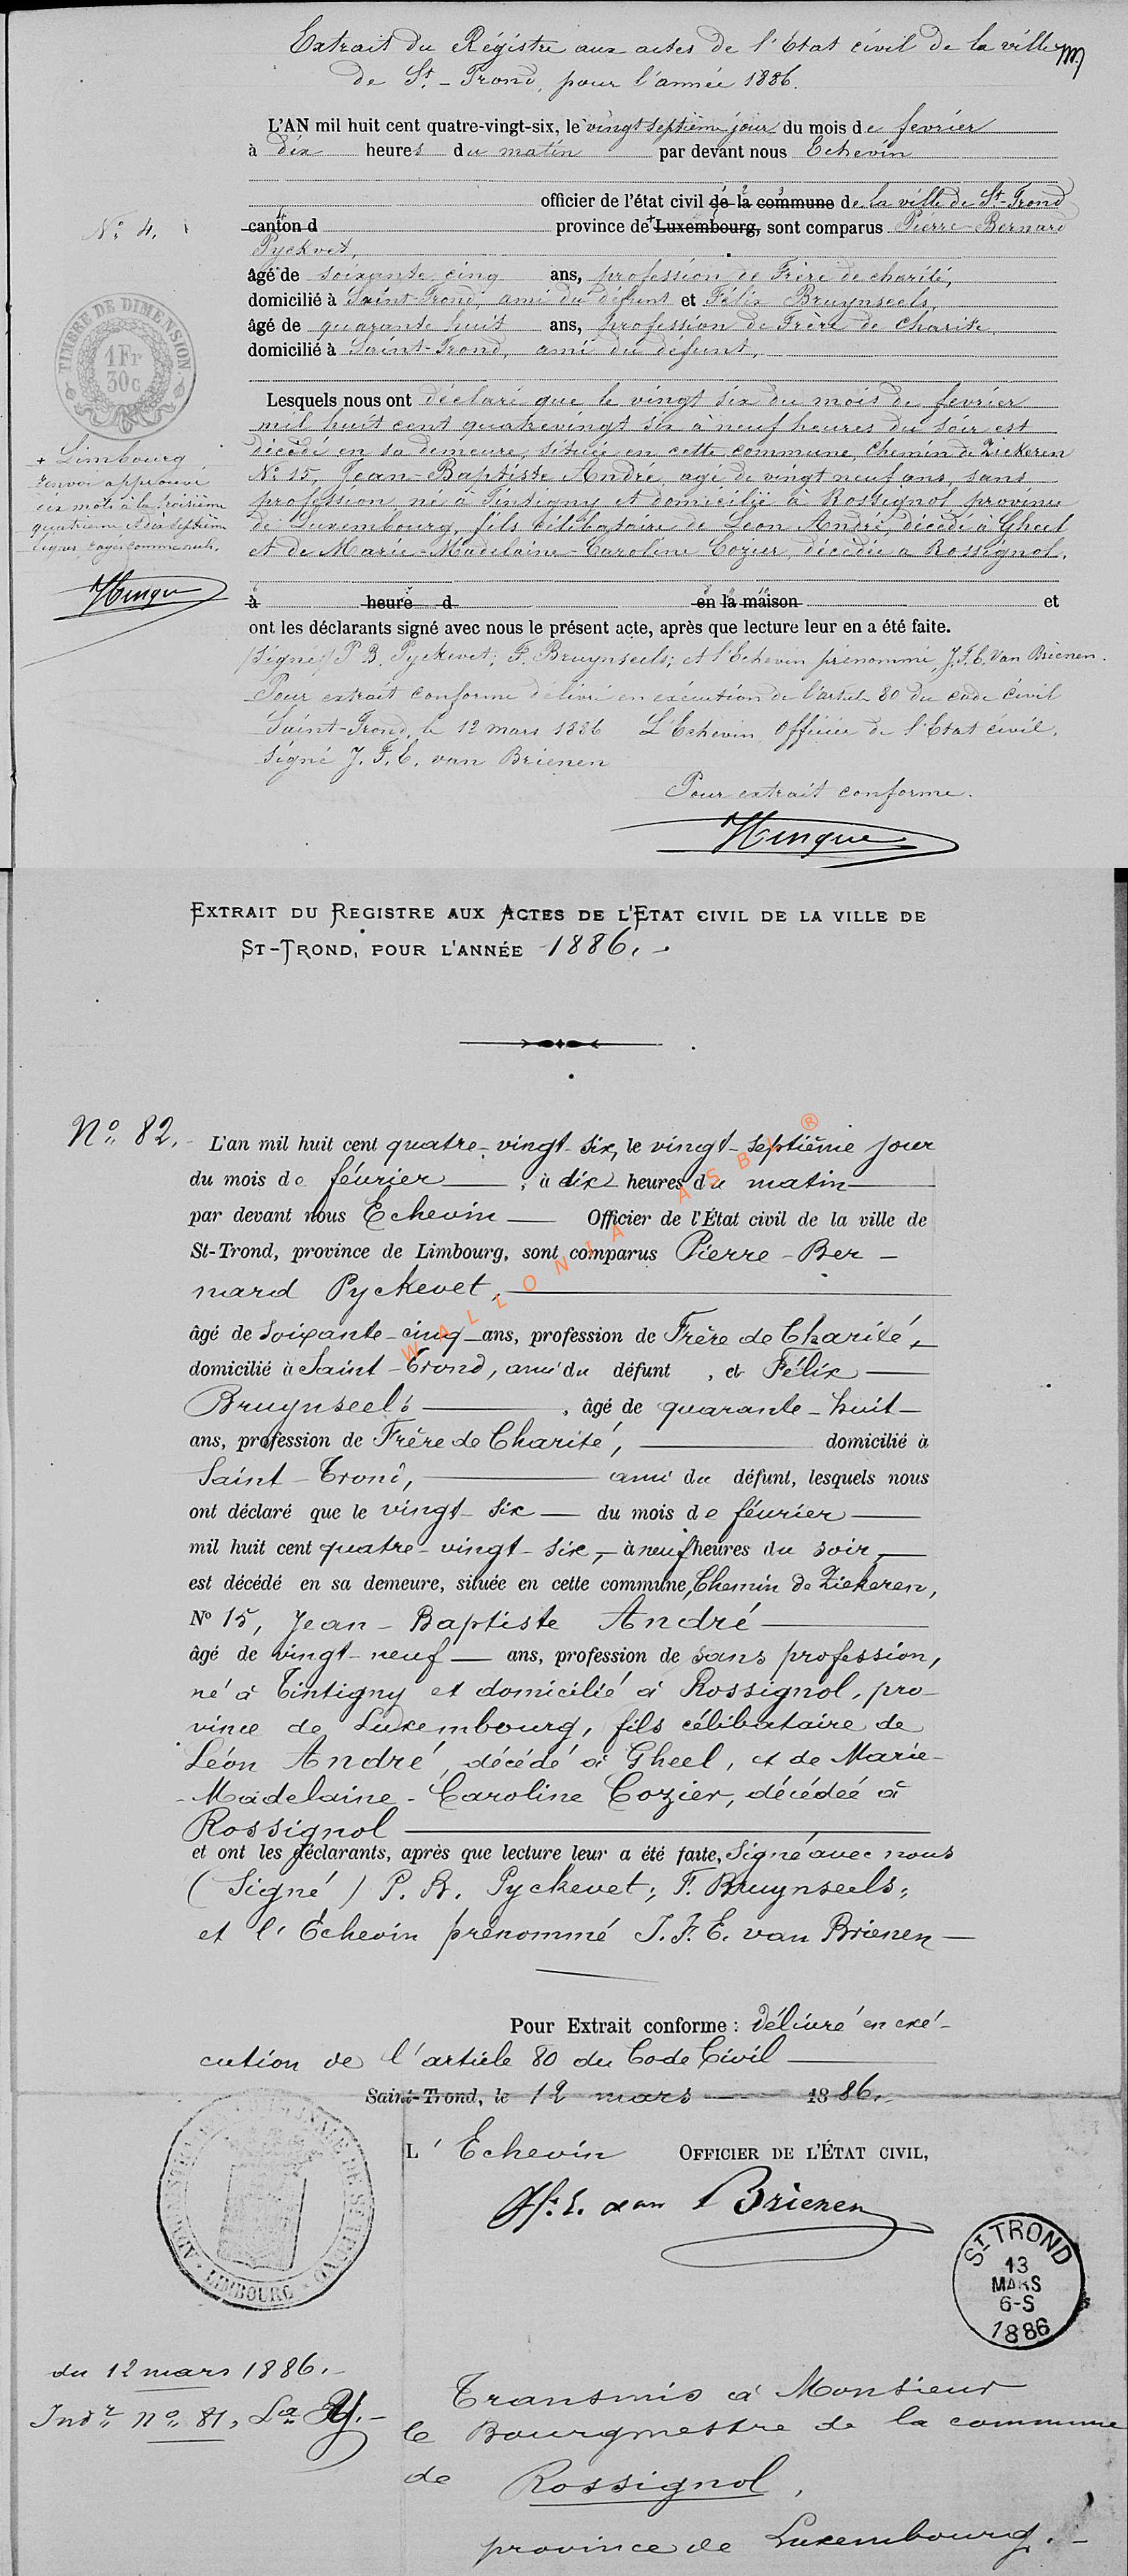 Extrait du Régistre aux actes de l'Etat civil de la ville
de St.-Trond, pour l'année 1886.
L'AN mil huit cent quatre-vingt-six, le vingt septième jour du mois de fevrier
à dix heures du matin par devant nous Echevin
officier de l'état civil de la commune de la ville de St-Trond
No. 4.
canton d province de + Luxembourg, sont comparus Pierre-Bernard
Pyckvet,
âgé de soixante cinq ans, profession de Frère de charité,
domicilié à Saint-Trond, ami du défunt et Félix Bruynseels,
âgé de quarante huit ans, profession de Frère de charité,
domicilié à Saint-Trond, ami du défunt,
TIMBRE DE DIMENSION
1 Fr
30c
Lesquels nous ont déclaré que le vingt six du mois de fevrier
mil huit cent quatrevingt six à neuf heures du soir est
décédé en sa demeure, située en cette commune, chemin de Ziekeren
No 15, Jean-Baptiste André, agé de vingt neuf ans, sans
profession né à Tintigny et domicilié à Rossignol province
de Luxembourg, fils célibataire de Léon André, décédé à Gheel
et de Marie-Madelaine-Caroline Cozier, décédée a Rossignol.
+ Limbourg
renvoi approuvé
six mots à la troisième
quatrième et dix septième
lignes, rayés comme nuls.
Hinque
à heure d en la maison et
ont les déclarants signé avec nous le présent acte, après que lecture leur en a été faite.
(Signé) P. B. Pyckevet; F. Bruynseels; et l'Echevin prénommé, J. F. E. Van Brienen.
Pour extrait conforme délivré en exécution de l'article 80 du code civil
Saint-Trond, le 12 mars 1886 L'Echevin Officier de l'Etat civil,
signé J. F. E. van Brienen
Pour extrait conforme.
Hinque
EXTRAIT DU REGISTRE AUX ACTES DE L'ETAT CIVIL DE LA VILLE DE
ST-TROND, POUR L'ANNÉE 1886.
No. 82. L'an mil huit cent quatre-vingt-six, le vingt-septième jour
du mois de février, à dix heures du matin
par devant nous Echevin Officier de l'État civil de la ville de
St-Trond, province de Limbourg, sont comparus Pierre-Ber-
nard Pyckevet,
âgé de soixante-cinq ans, profession de Frère de Charité,
domicilié à Saint-Trond, ami du défunt, et Félix
Bruynseels, âgé de quarante-huit
ans, profession de Frère de Charité, domicilié à
Saint-Trond, ami du défunt, lesquels nous
ont déclaré que le vingt-six du mois de février
mil huit cent quatre-vingt-six, à neuf heures du soir,
est décédé en sa demeure, située en cette commune, Chemin de Ziekeren,
No 15, Jean-Baptiste André
âgé de vingt-neuf ans, profession de sans profession,
né à Tintigny et domicilié à Rossignol, pro-
vince de Luxembourg, fils célibataire de
Léon André, décédé à Gheel, et de Marie-
-Madelaine-Caroline Cozier, décédée à
Rossignol
et ont les déclarants, après que lecture leur a été faite, signé avec nous
(Signé) P. B. Pyckevet; F. Bruynseels;
et l'Echevin prénommé J. F. E. van Brienen
WALLONIA ASBL ®
Pour Extrait conforme : délivré en exé-
cution de l'article 80 du Code Civil
Saint-Trond, le 12 mars 1886.
L'Echevin OFFICIER DE L'ÉTAT CIVIL,
J. F. E. van Brienen
LIMBOURG
ST TROND
13
MARS
6-S
1886
du 12 mars 1886.
Indr. no. 81,
Transmis à Monsieur
le Bourgmestre de la commune
de Rossignol,
province de Luxembourg.